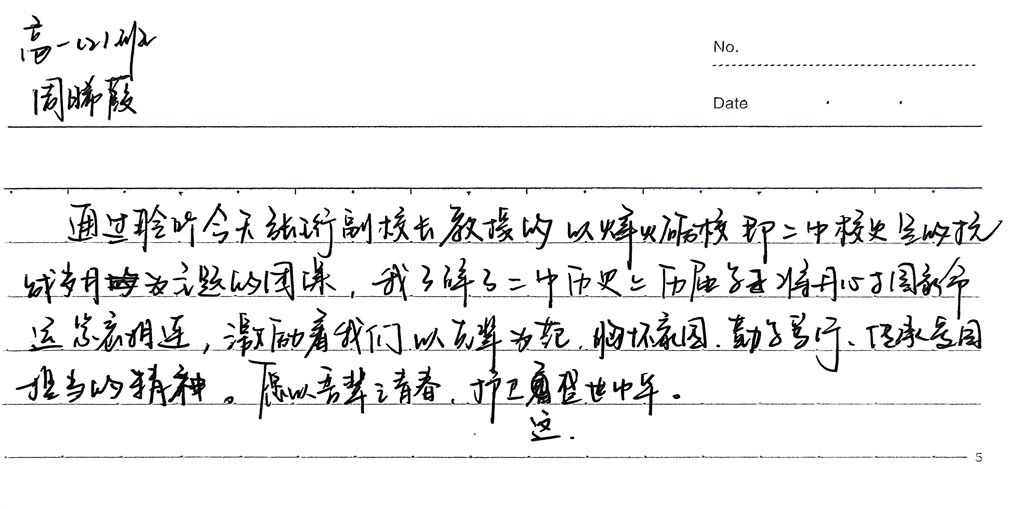 高一(2)班
周晞葭
No.
Date
通过聆听今天张行副校长教授的以烽火砺校 即二中校史里的抗
战岁月为主题的团课，我了解了二中历史上历届学子将自己与国家命
运紧密相连，激励着我们以先辈为范，胸怀家国，勤学笃行、传承爱国
担当的精神。愿以吾辈之青春，护卫盛世中华。
这.
5